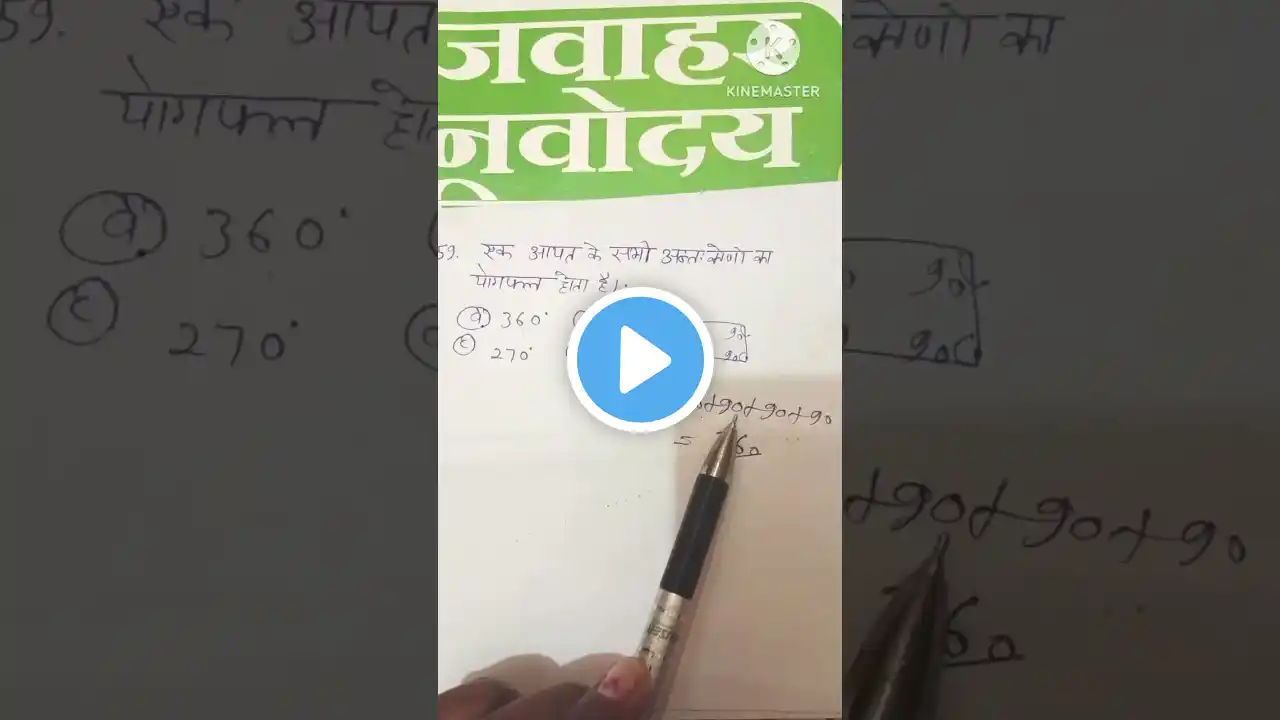 जवाहर
नवोदय
KINEMASTER
59. एक आपत के सभी अन्तः कोणो का
योगफल होता है।
360°
270°
90
90
+90+90+90
=